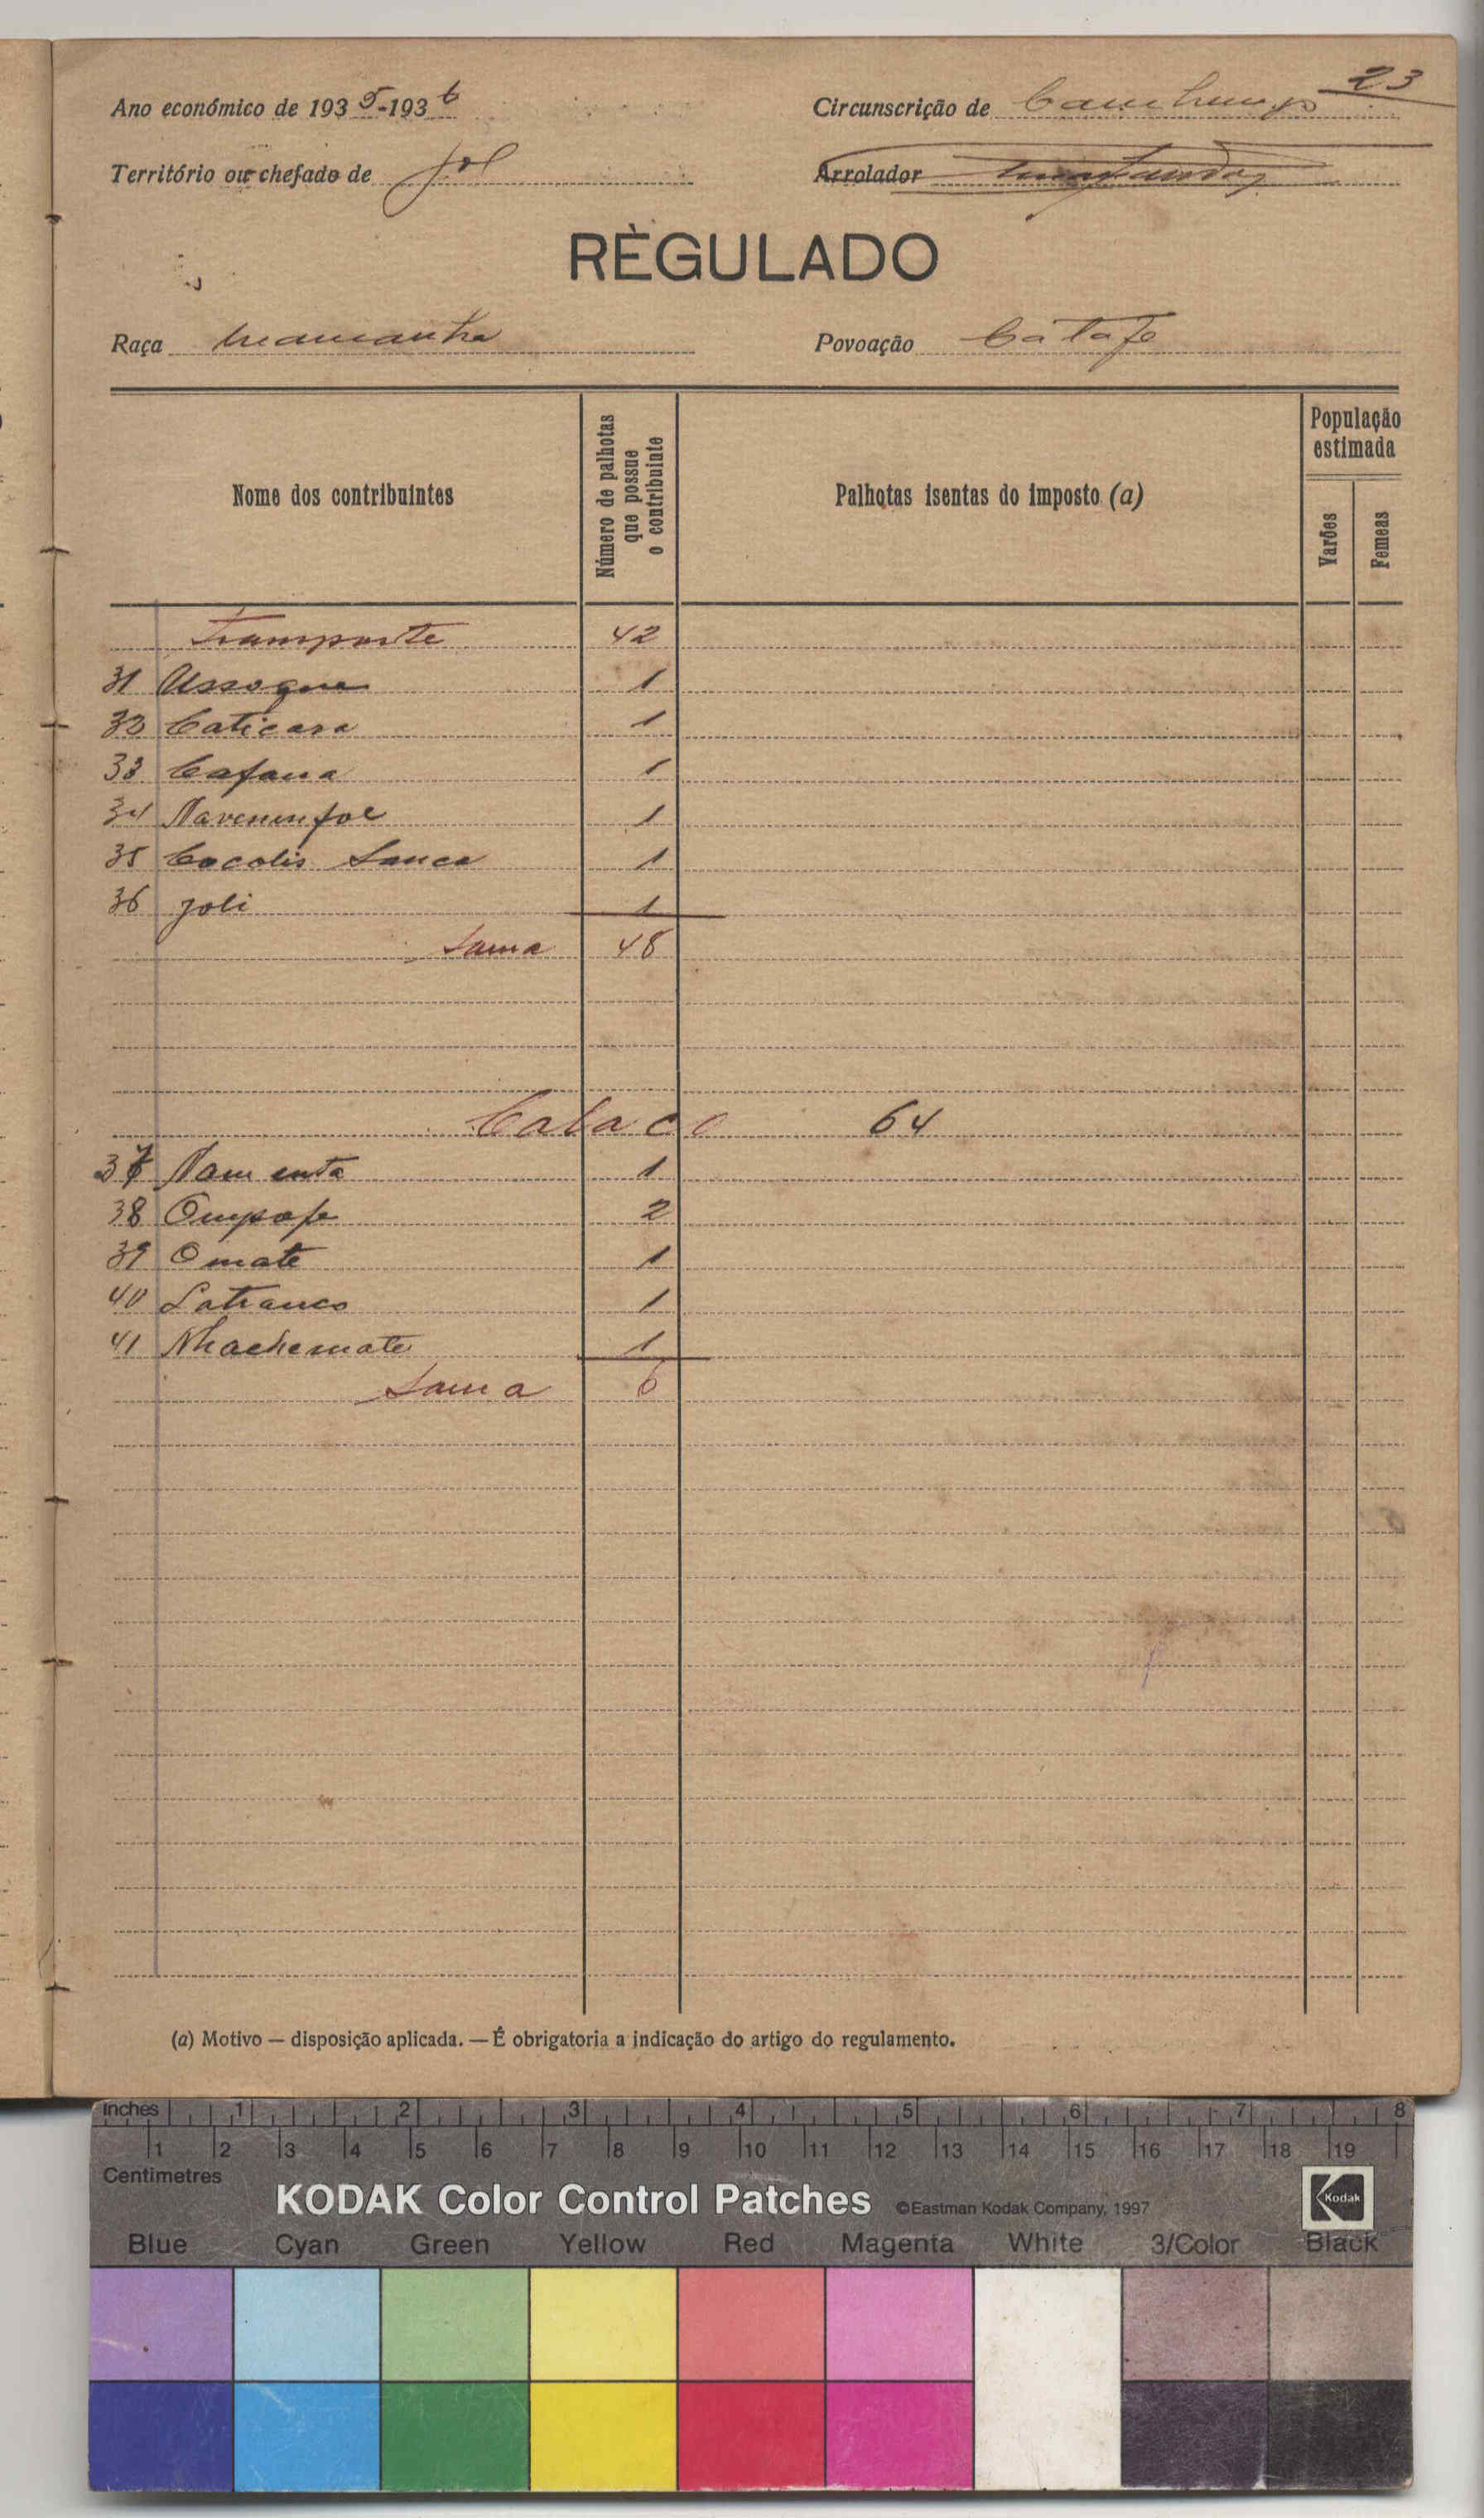 23
Ano económico de 1935-1936
Circunscrição de Canchungo
Território ou chefado de Jol
Arrolador
RÈGULADO
Raça Mamanha
Povoação Cátafe
Nome dos contribuintes
Número de palhotas que possue o contribuinte
Palhotas isentas do imposto (a)
População estimada
Varões
Femeas
Transporte 42
31 Assoque 1
32 Caticasa 1
33 Cafana 1
34 1
35 Cocolis Sanca 1
36 Joli 1
Soma 48
Calaco 64
37 Namenta 1
38 Ompafe 2
39 Omate 1
40 Latranco 1
41 Nhachemate 1
Soma 6
(a) Motivo — disposição aplicada. — É obrigatoria a indicação do artigo do regulamento.
inches 1 2 3 4 5 6 7 8
1 2 3 4 5 6 7 8 9 10 11 12 13 14 15 16 17 18 19
Centimetres
KODAK Color Control Patches ©Eastman Kodak Company, 1997 Kodak
Blue Cyan Green Yellow Red Magenta White 3/Color Black